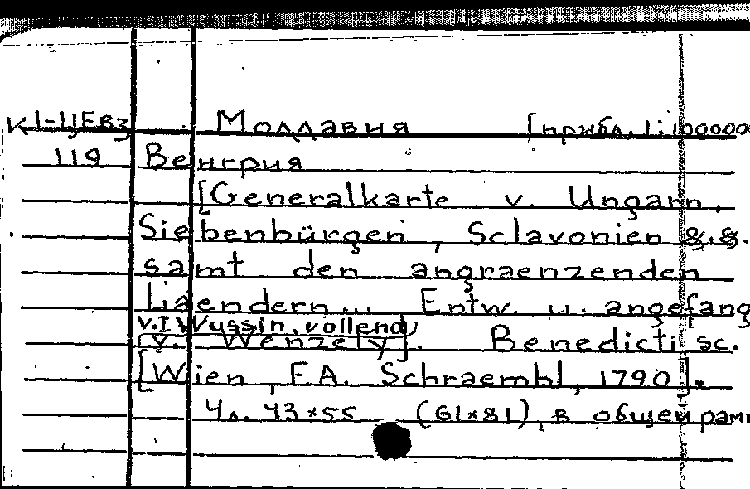 К 1-ЦЕвз Молдавия [прибл. 1:1000000
119 Венгрия
[Generalkarte v. Ungarn,
Siebenbürgen, Sclavonien &.&.
samt den angraenzenden
Liaendern... Entw. u. angefang
v.I Wussin, vollend,
[v. Wenzely]. Benedicti sc.
[Wien, F.A. Schraembl, 1790].
4 л. 43×55 (61×81), в общей рамк